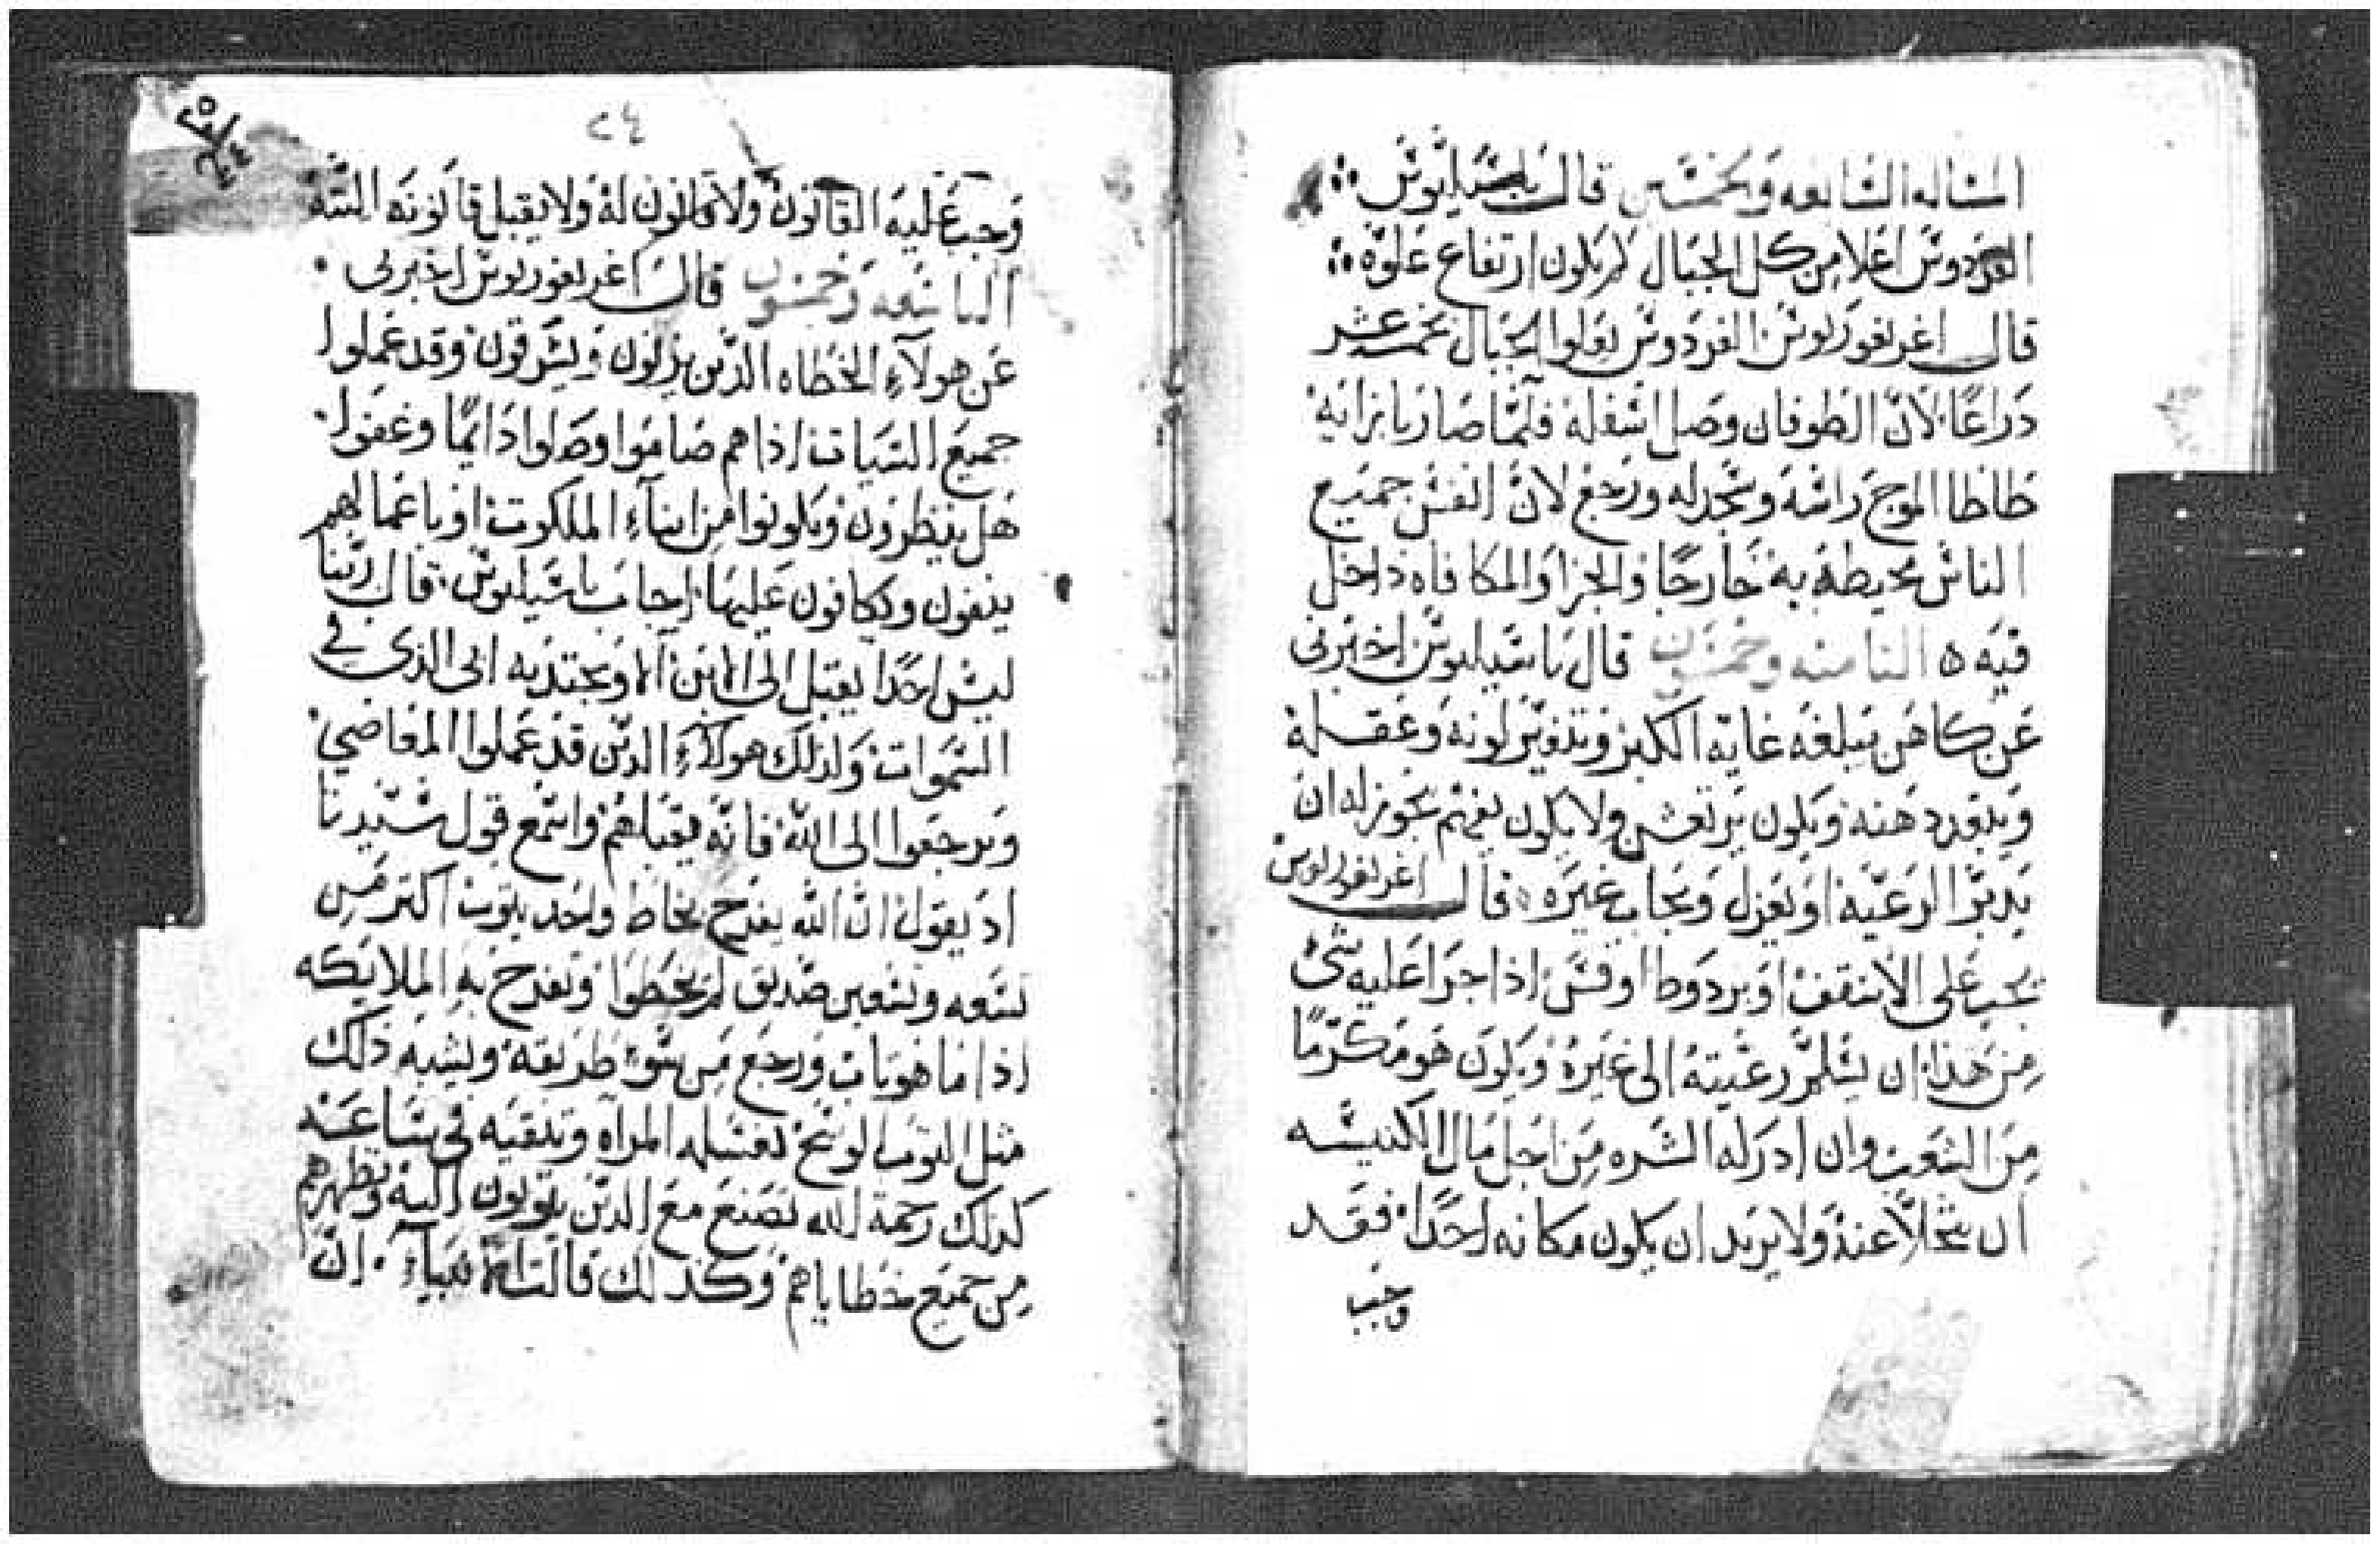 المساله السابعه وخمسين قال باسيليوس
الفردوس اعلا من كل الجبال كم يكون ارتفاع علوه
قال اغريغوريوس الفردوس يعلوا الجبال خمسة عشر
دراعًا لان الطوفان وصل اسفله فلما صار بازايه
طاطا الموج راسه وسجد له ورجع لان انفس جميع
الناس محيطة به خارجًا والجزا والمكافاه داخل
فيه ه الثامنه وخمسون قال باسيليوس اخبرنى
عن كاهن يبلغه غاية الكبر وتغير لونه وعقله
ويفقد دهنه ويكون يرتعش ولا يكون يفهم يجوز له ان
يدبر الرعيه او يعزل ويجاب غيره قال اغريغوريوس
يجب على الاسقف او بردوط او قس اذا جرا عليه شى
من هذا ان يسلم رعيته الى غيره ويكون هو مكرمًا
من الشعب وان ادركه الشره من اجل مال الكنيسه
ان يتخلا عنه ولا يريد ان يكون مكانه احدًا فقد
وجب
٢٤
وجب عليه القانون ولا قانون له ولا يقبل قانونه البته
التاسعه وخمسون قال اغريغوريوس اخبرنى
عن هولاء الخطاه الذين يزنون ويسرقون وقد عملوا
جميع السيات اذا هم صاموا وصلوا دايمًا وعفوا
هل ينظرون ويكونوا من ابناء الملكوت او باعمالهم
ينفون ويكافون عليها اجاب باسيليوس قال ربنا
ليس احدًا يقبل الى الا من الاب ويجتذبه الى الذى في
السموات ولذلك هولاء الذين قد عملوا المعاصي
ويرجعوا الى الله فانه يقبلهم واسمع قول سيدنا
اذ يقول ان الله يفرح بخاط واحد يتوب اكتر من
تسعه وتسعين صديق لم يخطوا وتفرح به الملايكه
اذا ما هو تاب ورجع من سوء طريقه ويشبه ذلك
مثل التوب الوسخ تغسله المراه وتنقيه في ساعته
كذلك رحمة الله تصنع مع الذين يتوبون اليه وتطهرهم
من جميع خطاياهم وكذلك قالت الانبياء ان